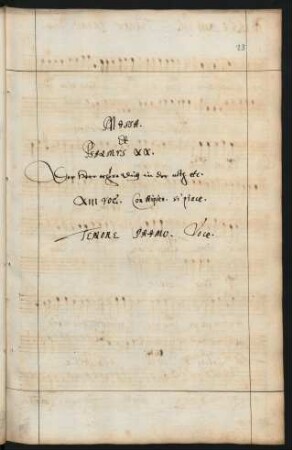 23
Missa.
et
Psalmus XX.
Der Herr erhöre dich in der Noth etc.
XIII Voc. Con Ripien. si piace.
TENORE PRIMO. Voce.